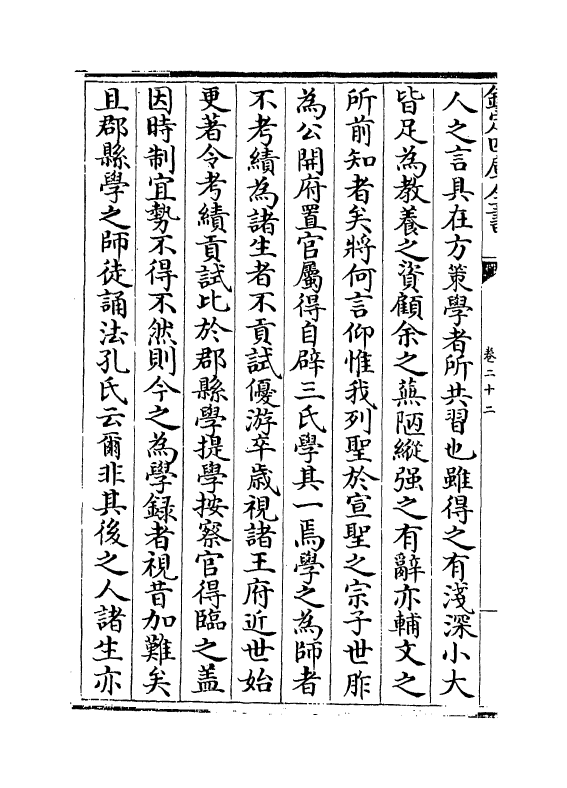 欽定四庫全書
卷二十二
人之言具在方策學者所共習也雖得之有淺深小大
皆足為教養之資顧余之蕪陋縱强之有辭亦輔文之
所前知者矣將何言仰惟我列聖於宣聖之宗子世胙
為公開府置官屬得自辟三氏學其一焉學之為師者
不考績為諸生者不貢試優游卒歳視諸王府近世始
更著令考績貢試比於郡縣學提學按察官得臨之盖
因時制宜勢不得不然則今之為學録者視昔加難矣
且郡縣學之師徒誦法孔氏云爾非其後之人諸生亦